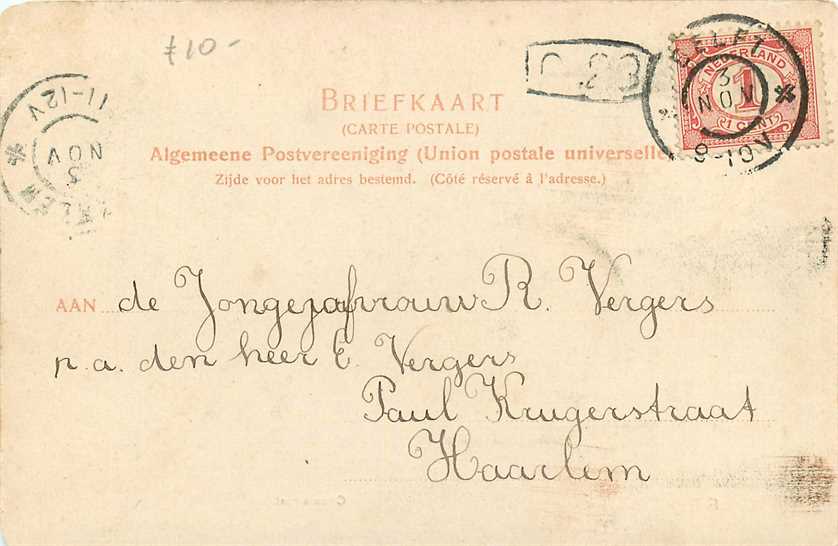 f10-
BRIEFKAART
(CARTE POSTALE)
Algemeene Postvereeniging (Union postale universelle
Zijde voor het adres bestemd. (Côté réservé à l'adresse.)
DELFT
3
NOV
9-10V
NEDERLAND
1
1 CENT
11-12V
NOV
3
AAN de Jongejafvrouw R. Vergers
p.a. den heer E. Vergers
Paul Krugerstraat
Haarlem